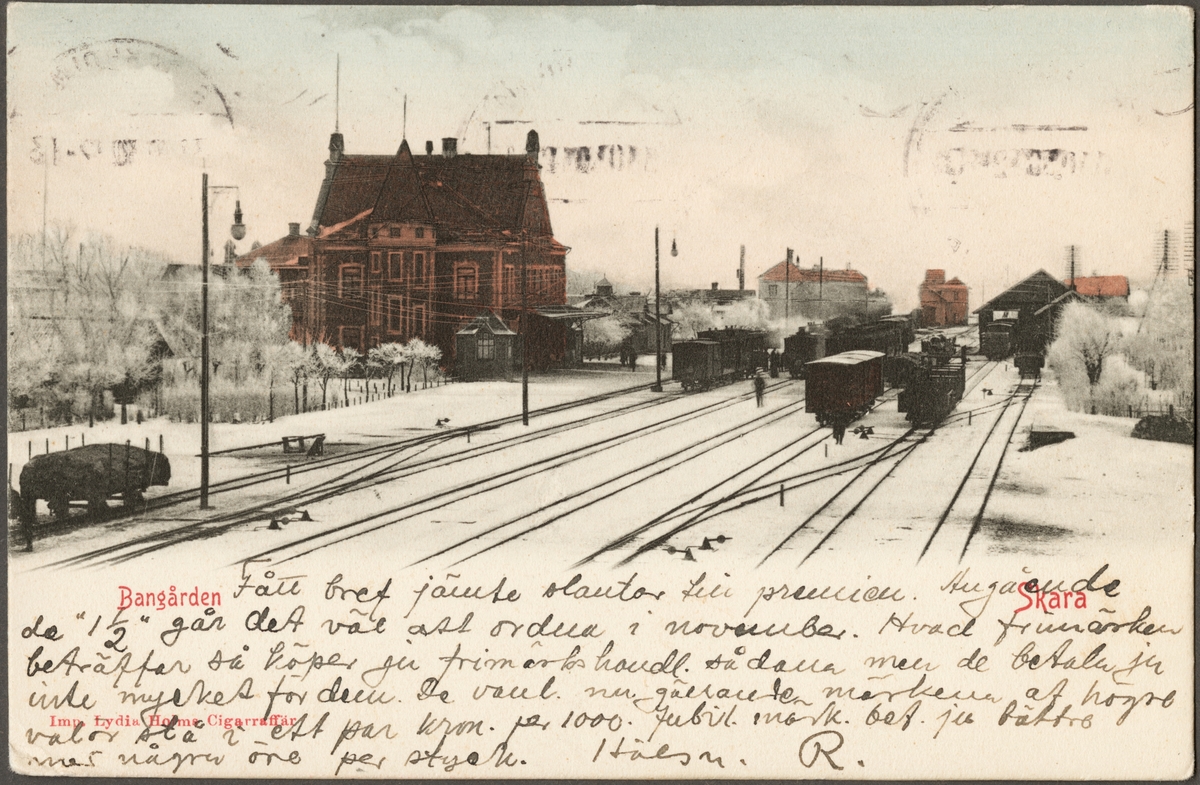 Bangården
Skara
Fått bref jämte slantar till premien. Angående
de "1 1/2" går det väl att ordna i november. Hvad frimärken
beträffar så köper ju frimärkshandl. sådana men de betala ju
inte mycket för dem. De vanl. nu gällande märkena af högre
valör stå i ett par kron. per 1000. Jubil. märk. bet. ju bättre
med några öre per styck. Hälsn. R.
Imp. Lydia Holms Cigarraffär